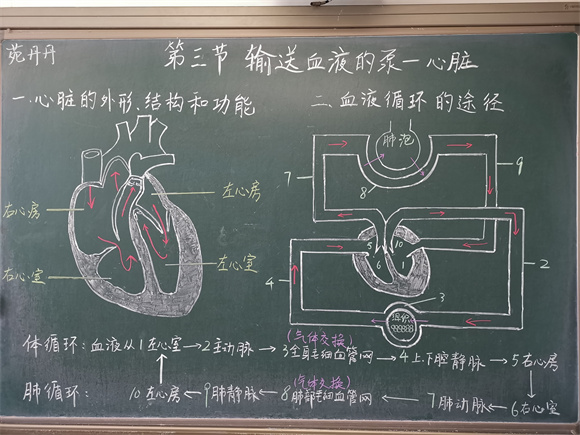 苑丹丹
第三节 输送血液的泵一心脏
一.心脏的外形、结构和功能
二.血液循环的途径
右心房
左心房
右心室
左心室
肺泡
7
8
9
5
10
6
1
4
2
3
组织
体循环：血液从1左心室→2主动脉→3全身毛细血管网→4上、下腔静脉→5右心房
(气体交换)
肺循环：10左心房←9肺静脉←8肺部毛细血管网←7肺动脉←6右心室
(气体交换)